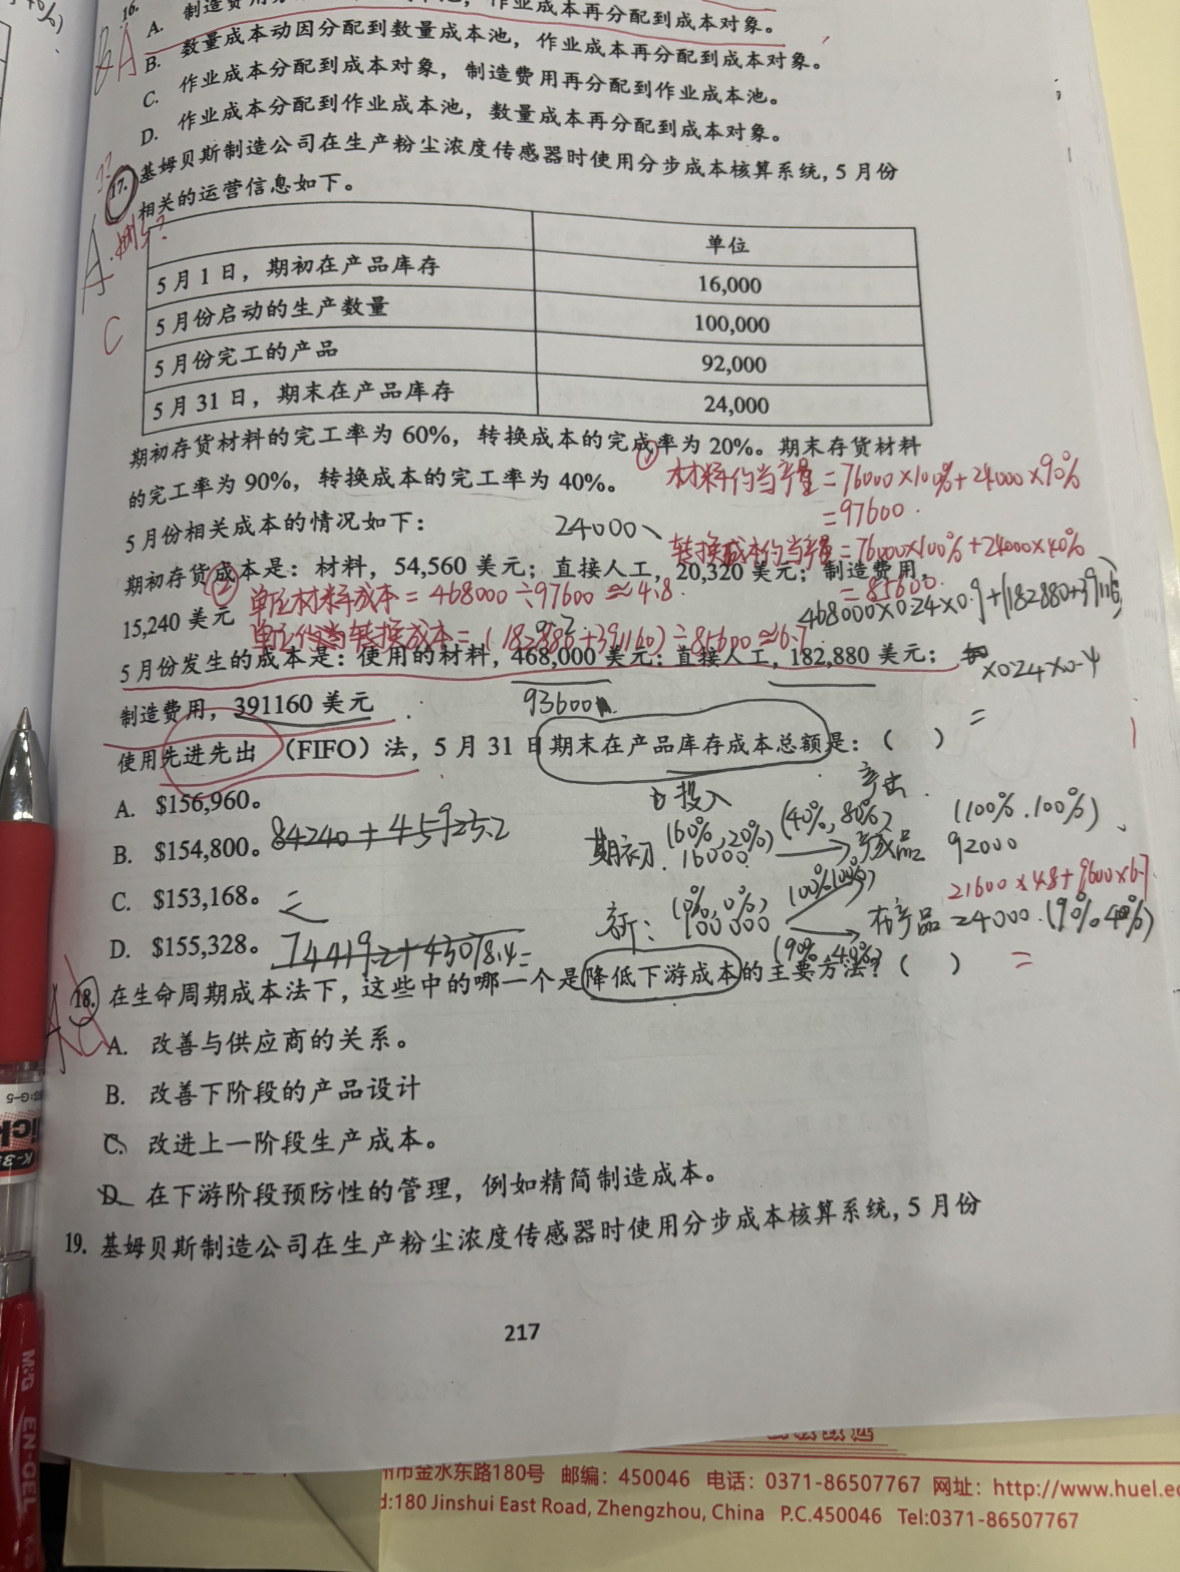 16.
A. 作业成本再分配到成本对象。
B. 数量成本动因分配到数量成本池，作业成本再分配到成本对象。
C. 作业成本分配到成本对象，制造费用再分配到作业成本池。
D. 作业成本分配到作业成本池，数量成本再分配到成本对象。
17. 基姆贝斯制造公司在生产粉尘浓度传感器时使用分步成本核算系统, 5 月份
相关的运营信息如下。
A
C
单位
5 月 1 日，期初在产品库存 16,000
5 月份启动的生产数量 100,000
5 月份完工的产品 92,000
5 月 31 日，期末在产品库存 24,000
期初存货材料的完工率为 60%，转换成本的完成率为 20%。期末存货材料
的完工率为 90%，转换成本的完工率为 40%。
① 材料约当产量 = 76000×100%+24000×90%
= 97600.
5 月份相关成本的情况如下：
24000
转换成本约当产量 = 76000×100%+24000×40%
= 85600.
期初存货成本是：材料，54,560 美元；直接人工，20,320 美元；制造费用，
15,240 美元
② 单位材料成本 = 468000÷97600≈4.8
468000×0.24×0.9+(182880+391160)
×0.24×0.4
=
单位转换成本 = (182880+391160)÷85600≈6.7
5 月份发生的成本是：使用的材料，468,000 美元；直接人工，182,880 美元；
制造费用，391160 美元
93600
使用先进先出（FIFO）法，5 月 31 日期末在产品库存成本总额是：（ ）
A. $156,960。
B. $154,800。
C. $153,168。
D. $155,328。
84240+45923.2
=
74419.2+43078.4=
投入
产出
期初. 16000 (60%,20%) (40%,80%) 产成品 92000 (100%.100%)
新: 100000 (0%,0%) (100%100%)
(90% 40%) 在产品 24000.(90%.40%)
21600×4.8+9600×6.7
=
18. 在生命周期成本法下，这些中的哪一个是降低下游成本的主要方法？（ ）
A. 改善与供应商的关系。
B. 改善下阶段的产品设计
C. 改进上一阶段生产成本。
D. 在下游阶段预防性的管理，例如精简制造成本。
19. 基姆贝斯制造公司在生产粉尘浓度传感器时使用分步成本核算系统, 5 月份
217
M&G EN-GEL
G-5
州市金水东路180号 邮编：450046 电话：0371-86507767 网址：http://www.huel.e
d:180 Jinshui East Road, Zhengzhou, China P.C.450046 Tel:0371-86507767